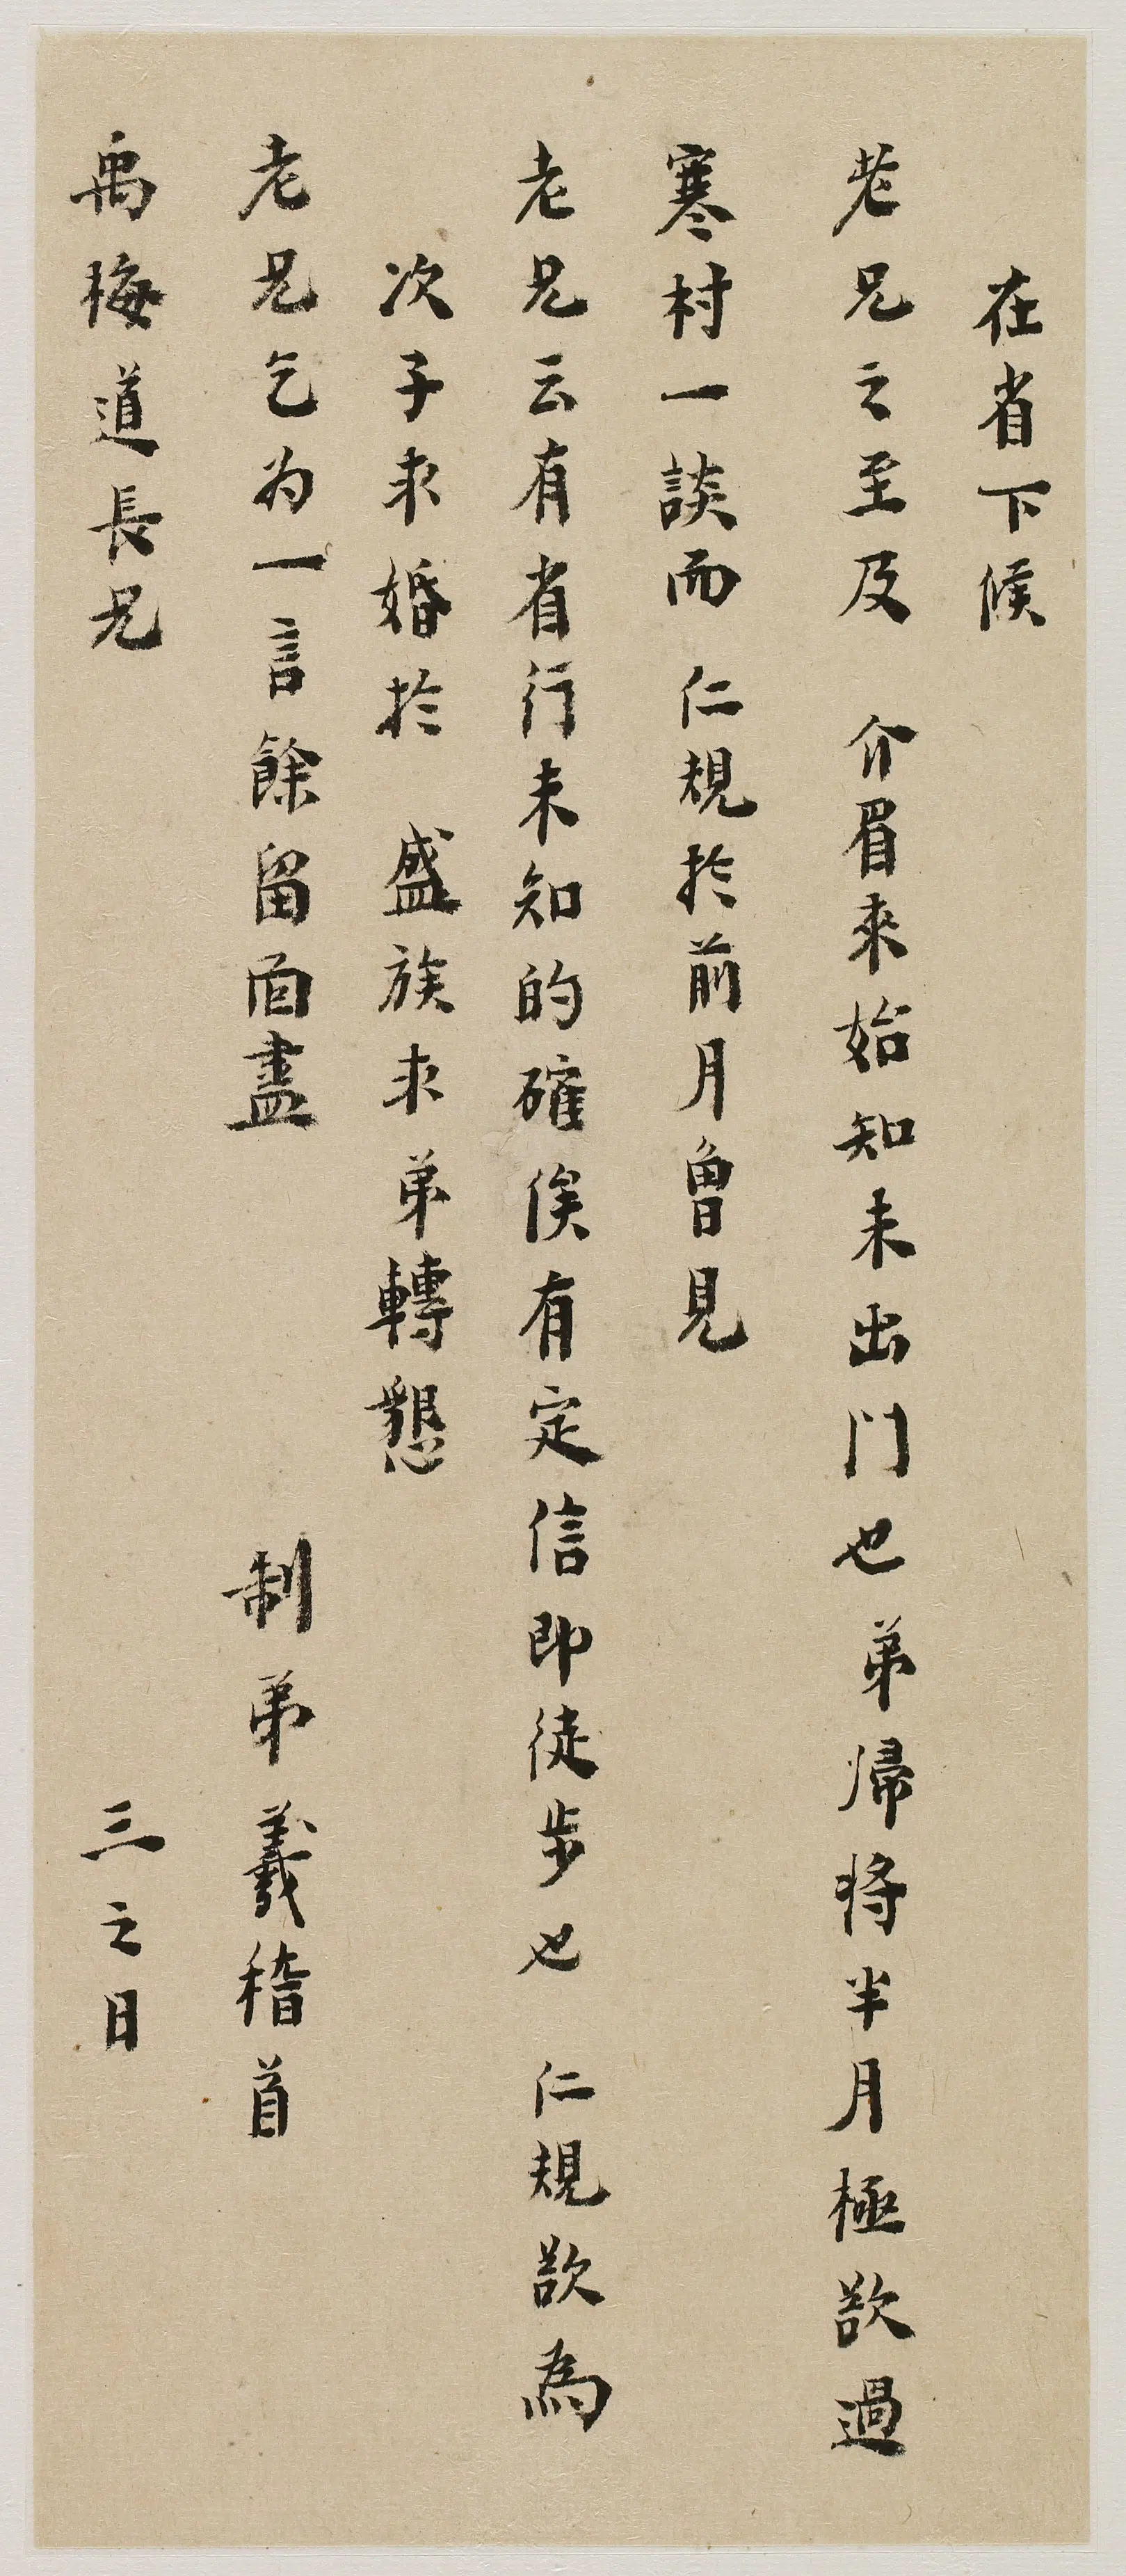 在省下候
老兄之至及 介眉來始知未出門也弟歸將半月極欲過
寒村一談而 仁規於前月曾見
老兄云有省行未知的確俟有定信即徒步也 仁規欲為
次子求婚於 盛族求弟轉懇
老兄乞为一言餘留面盡 制弟羲稽首
禹梅道長兄 三之日